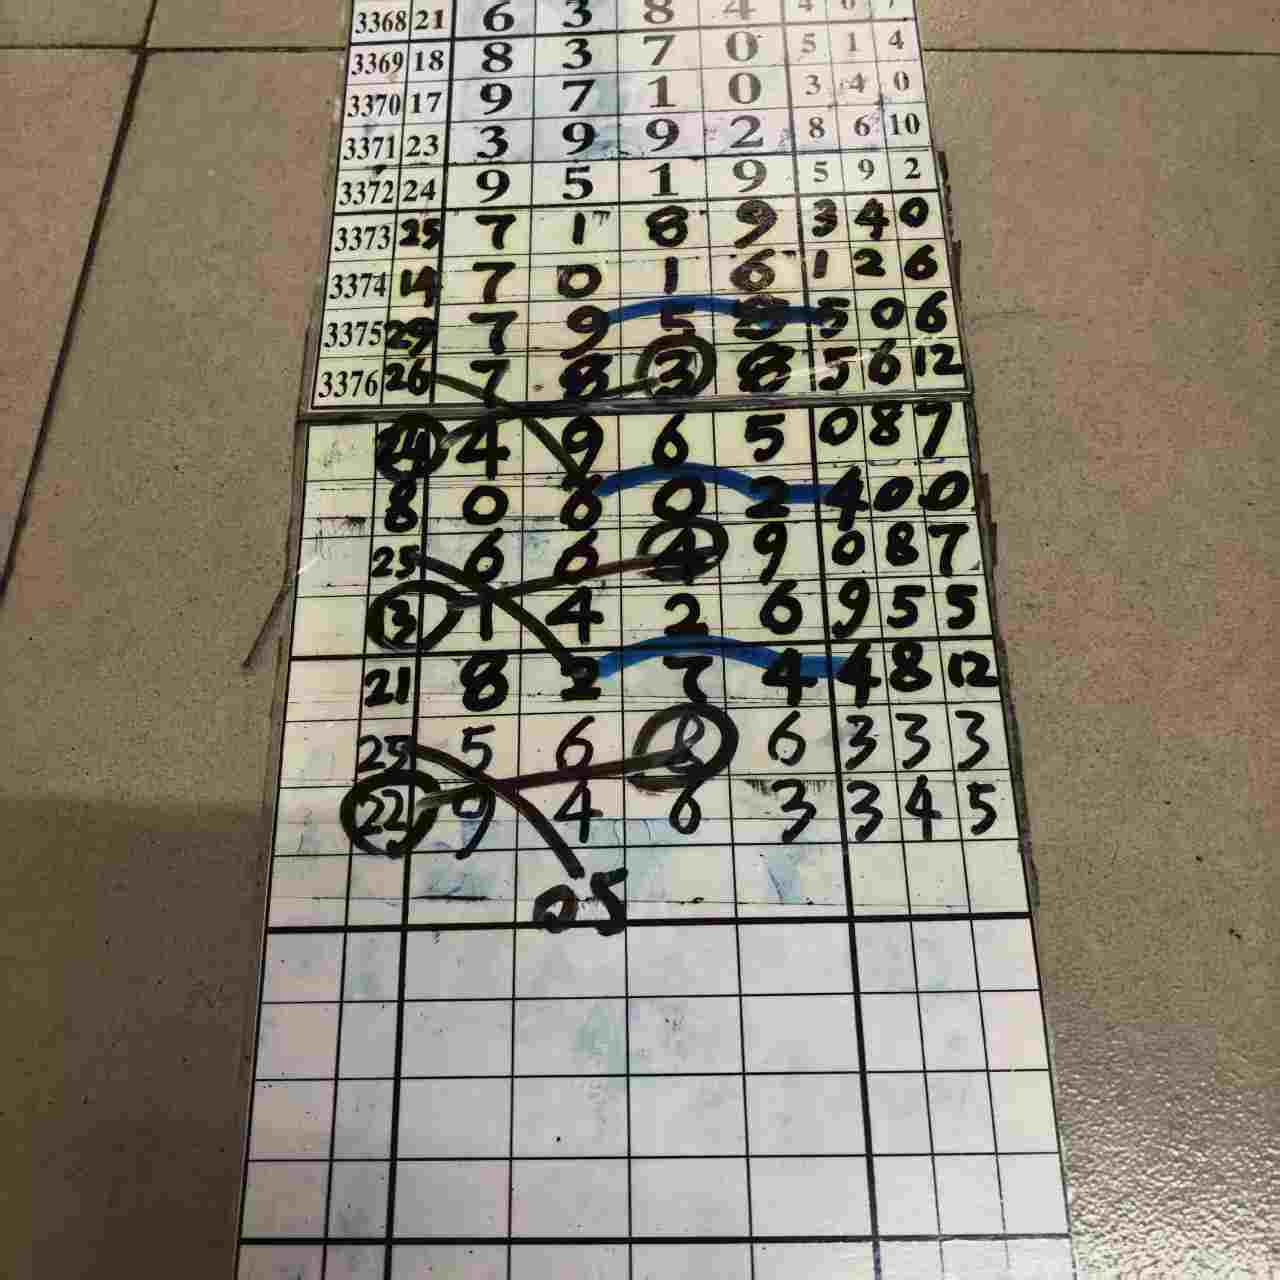 3368 21 6 3 8 4 4 6 7
3369 18 8 3 7 0 5 1 4
3370 17 9 7 1 0 3 4 0
3371 23 3 9 9 2 8 6 10
3372 24 9 5 1 9 5 9 2
3373 25 7 1 8 9 3 4 0
3374 14 7 0 1 6 1 2 6
3375 29 7 9 5 5 0 6
3376 26 7 8 3 8 5 6 12
24 4 9 6 5 0 8 7
8 0 6 0 2 4 0 0
25 6 6 4 9 0 8 7
13 1 4 2 6 9 5 5
21 8 2 7 4 4 8 12
25 5 6 8 6 3 3 3
22 9 4 6 3 3 4 5
05